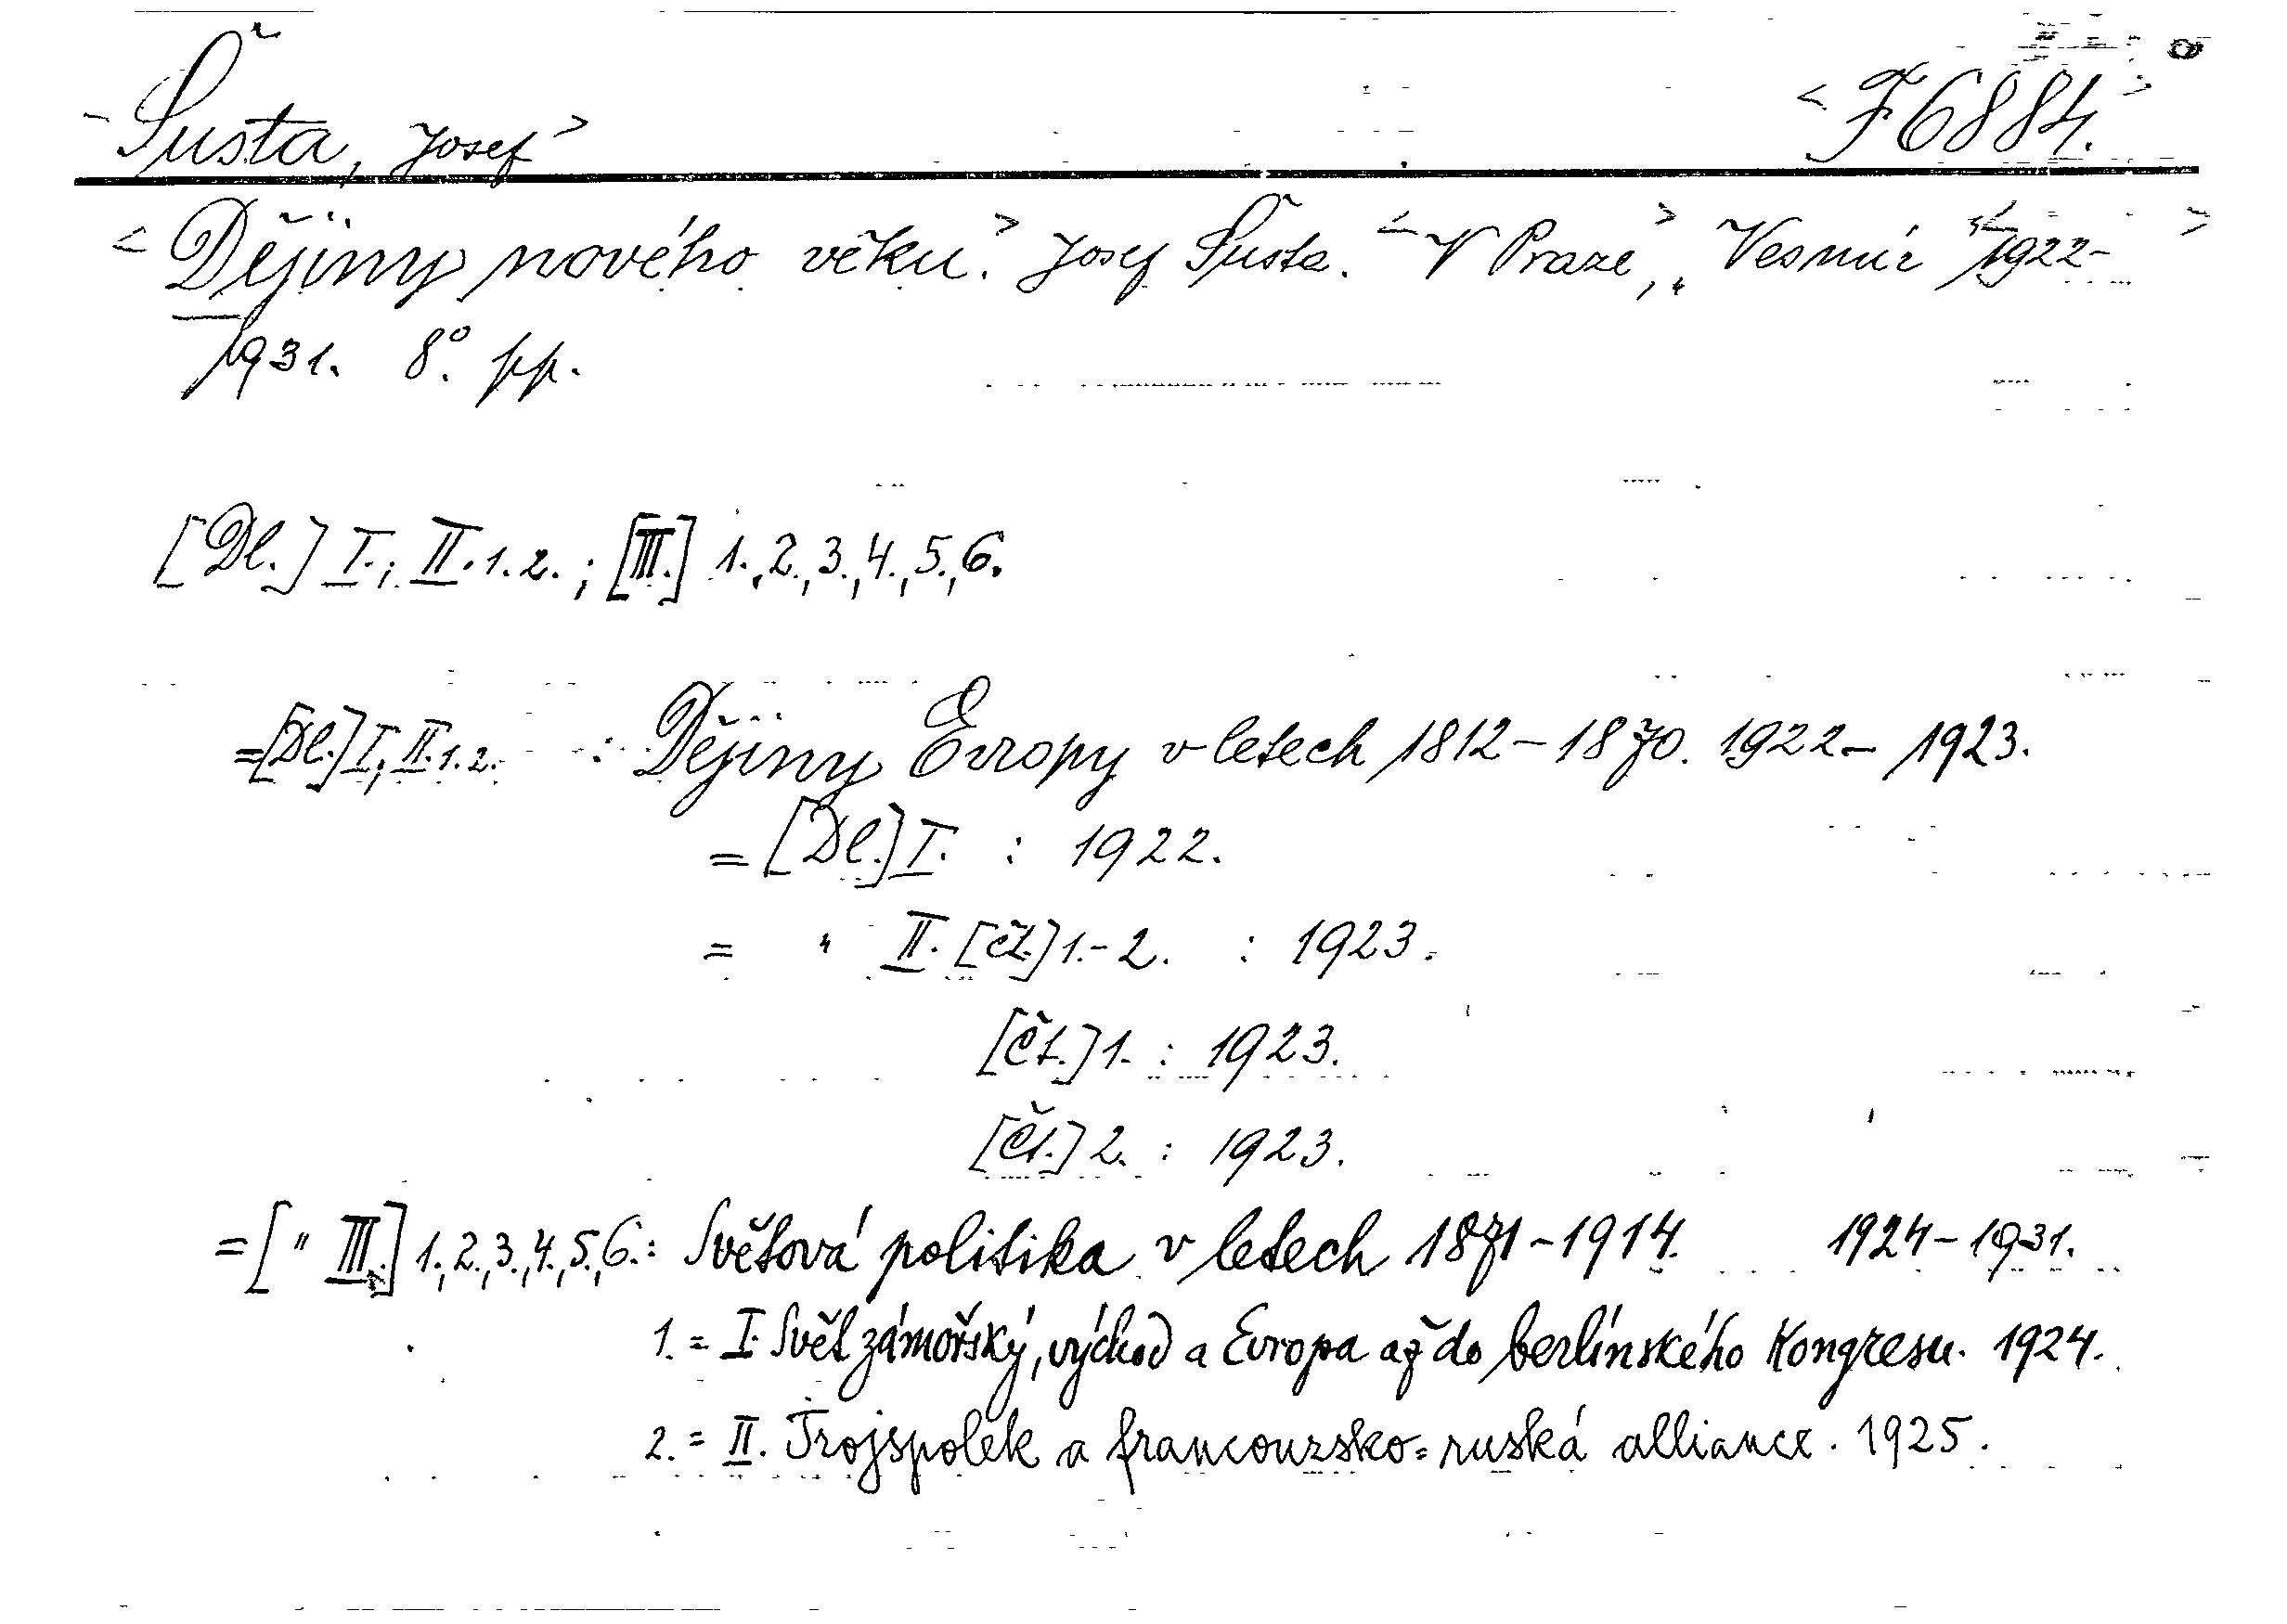 <Šusta, Josef> <F 6884.>
<Dějiny nového věku.> Josef Šusta. <V Praze,> „Vesmír" <1922-
1931. 8°. pp.
[Dl.] I.; II. 1. 2.; [III.] 1., 2., 3., 4., 5., 6.
=[Dl.] I, II. 1. 2. : Dějiny Evropy v letech 1812-1870. 1922-1923.
= [Dl.] I. : 1922.
= " II. [čt.] 1.-2. : 1923.
[čt.] 1. : 1923.
[čt.] 2. : 1923.
= [" III.] 1., 2., 3., 4., 5., 6.: Světová politika v letech 1871-1914. 1924-1931.
1. = I. Svět zámořský, východ a Evropa až do berlínského Kongresu. 1924.
2. = II. Trojspolek a francouzsko=ruská alliance. 1925.